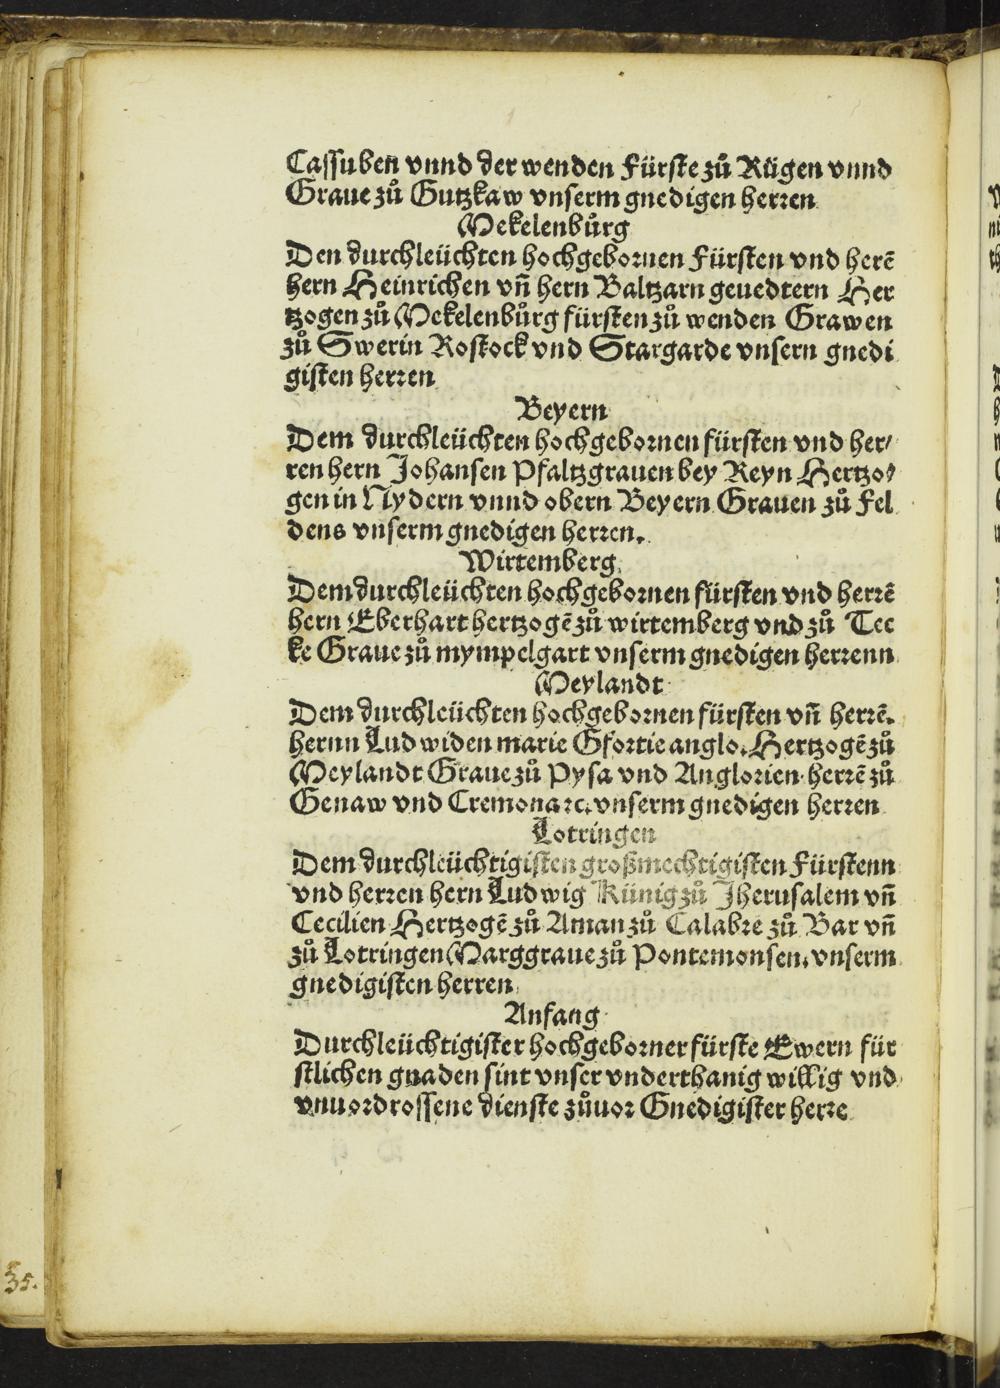 Cassuben vnnd der wenden Fürste zů Rügen vnnd
Graue zů Gutzkaw vnserm gnedigen herren
Mekelenbůrg
Den durchleüchten hochgebornen Fürsten vnd herẽ
hern Heinrichen vñ hern Baltzarn geuedtern Her
tzogen zů Mekelenbůrg fürsten zů wenden Grawen
zů Swerin Rostock vnd Stargarde vnsern gnedi
gisten herren
Beyern
Dem durchleüchten hochgebornen fürsten vnd her/
ren hern Johansen Pfaltzgrauen bey Reyn Hertzo/
gen in Nydern vnnd obern Beyern Grauen zů Fel
dens vnserm gnedigen herren.
Wirtemberg.
Dem durchleüchten hochgebornen fürsten vnd herrẽ
hern Eberhart hertzogẽ zů wirtemberg vnd zů Tec
ke Graue zů mympelgart vnserm gnedigen herrenn
Meylandt
Dem durchleüchten hochgebornen fürsten vñ herrẽ.
hernn Ludwiden marie Sfortie anglo. Hertzogẽ zů
Meylandt Graue zů Pysa vnd Anglorien herrẽ zů
Genaw vnd Cremona ꝛc. vnserm gnedigen herren
Lotringen
Dem durchleüchtigisten großmechtigisten Fürstenn
vnd herren hern Ludwig Künig zů Jherusalem vñ
Cecilien Hertzogẽ zů Aman zů Calabre zů Bar vñ
zů Lotringen Marggraue zů Pontemonsen. vnserm
gnedigisten herren
Anfang
Durchleüchtigister hochgeborner fürste Ewern für
stlichen gnaden sint vnser vnderthanig willig vnd
vnuordrossene dienste zůuor Gnedigister herre
35.